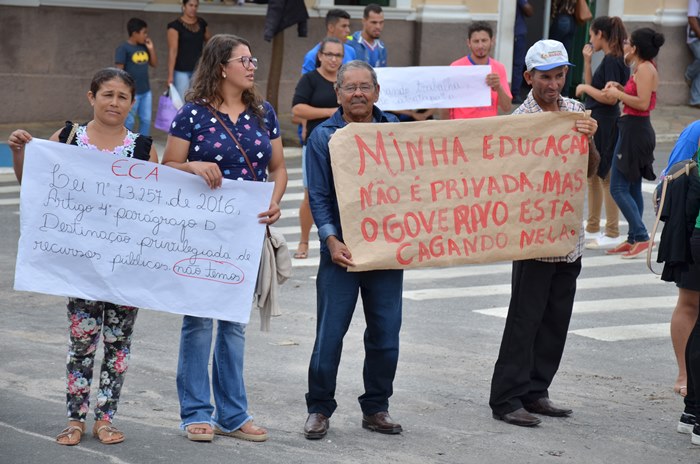 ECA
Lei nº 13.257 de 2016,
Artigo 4º parágrafo D
Destinação privilegiada de
recursos públicos não temos
MINHA EDUCAÇAO
NÃO É PRIVADA, MAS
O GOVERNO ESTA
CAGANDO NELA.